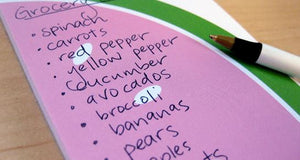 Grocery
• spinach
• carrots
• red pepper
• yellow pepper
• cucumber
• avocados
• broccoli
• bananas
• pears